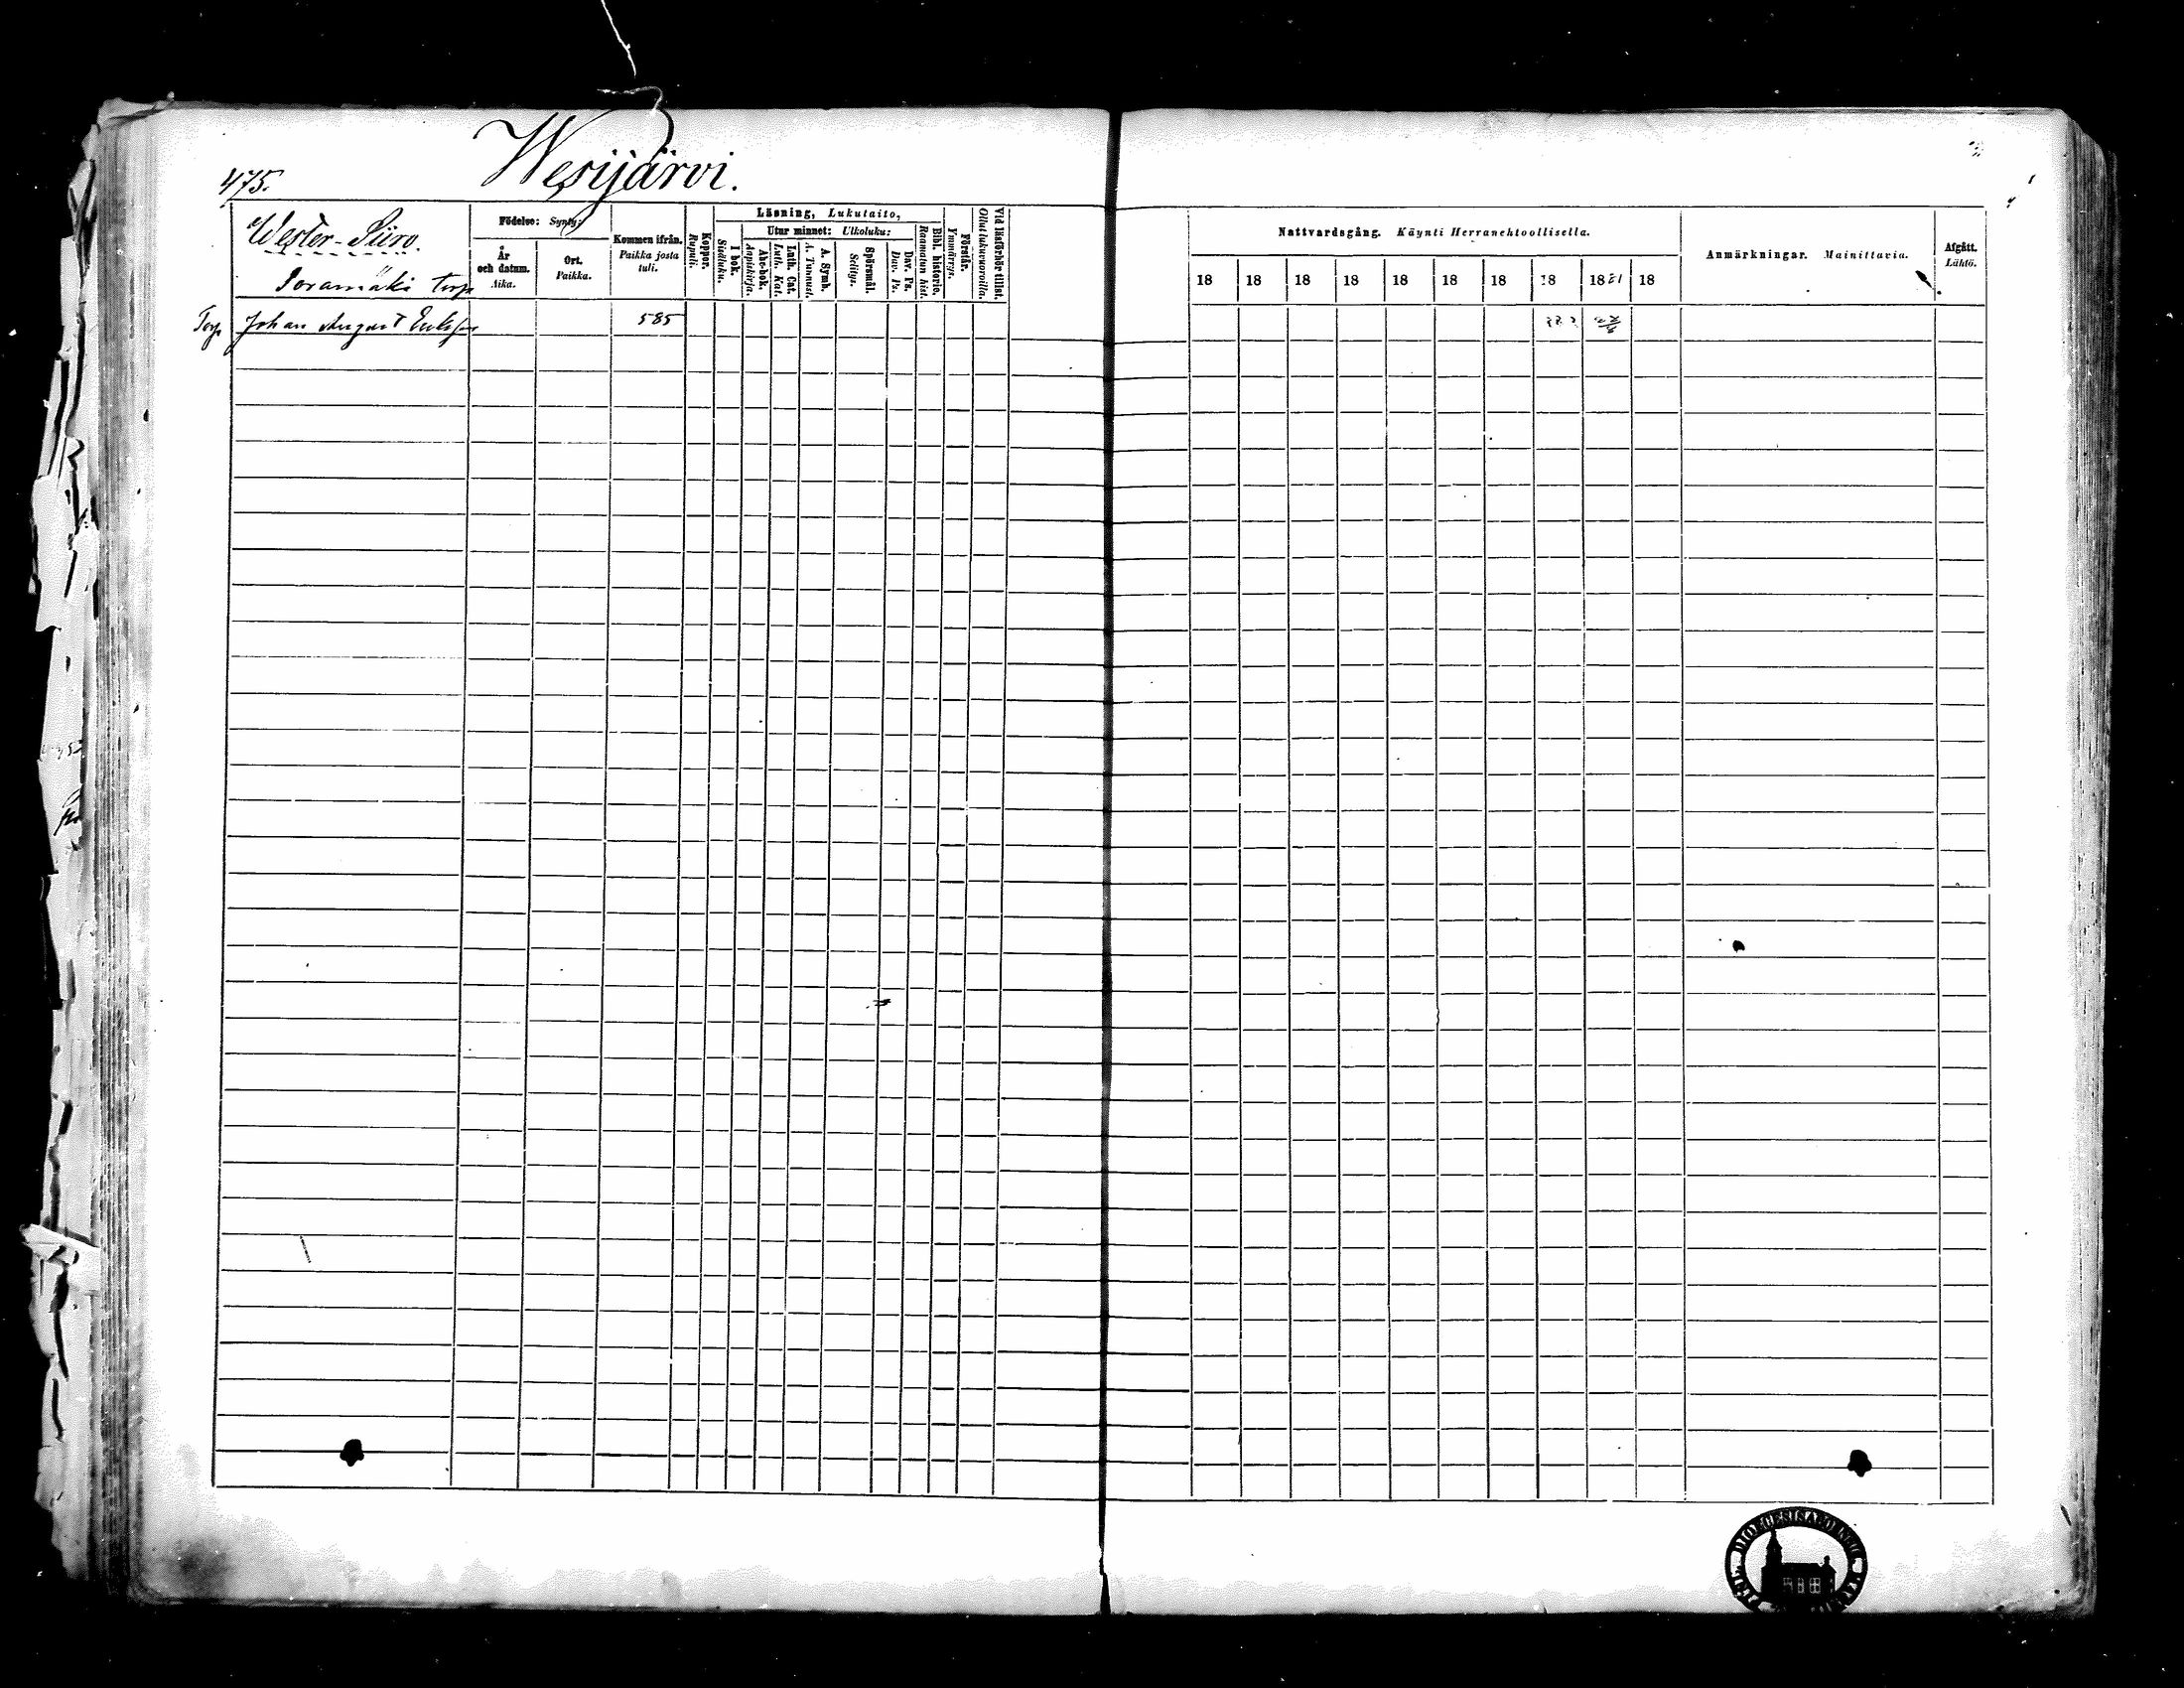 Wesijärvi.
475.
Wester-Siiro.
Soramäki Torp
Födelse: Synty:
År och datum. Aika.
Ort. Paikka.
Kommen ifrån. Paikka josta tuli.
Koppor. Rupuli.
Läsning, Lukutaito,
I bok. Sisäluku.
Utur minnet: Ulkoluku:
Abc-bok. Aapiskirja.
Luth. Cat. Luth. Kat.
A. Symb. A. Tunnust.
Spörsmål. Selitys.
Dav. Ps. Dav. Ps.
Bibl. historie. Raamatun hist.
Förstår. Ymmärrys.
Vid läsförhör tillst. Ollut lukuvuoroilla.
Nattvardsgång. Käynti Herranehtoollisella.
18 18 18 18 18 18 18 18 1881 18
Anmärkningar. Mainittavia.
Afgått. Lähtö.
Torp Johan August Eriksson 585